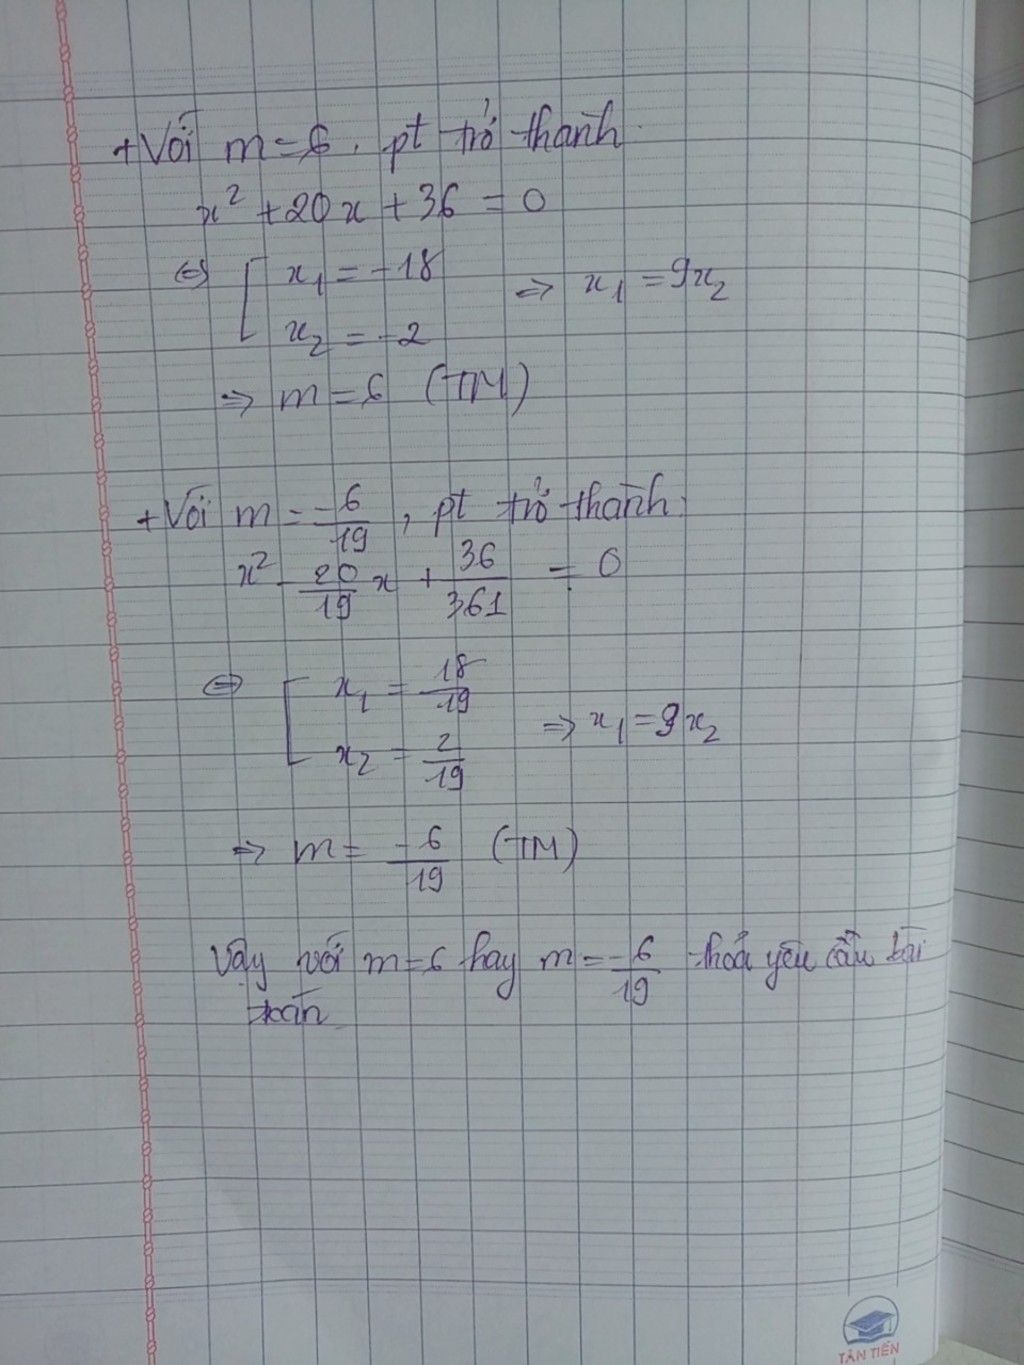 + Với m = 6, pt trở thành
x² + 20x + 36 = 0
⇔ [ x₁ = -18
x₂ = -2
⇒ x₁ = 9x₂
⇒ m = 6 (TM)
+ Với m = -6/19, pt trở thành:
x² - 20/19 x + 36/361 = 0
⇔ [ x₁ = 18/19
x₂ = 2/19
⇒ x₁ = 9x₂
⇒ m = -6/19 (TM)
Vậy với m = 6 hay m = -6/19 thoả yêu cầu bài
toán
TÂN TIẾN